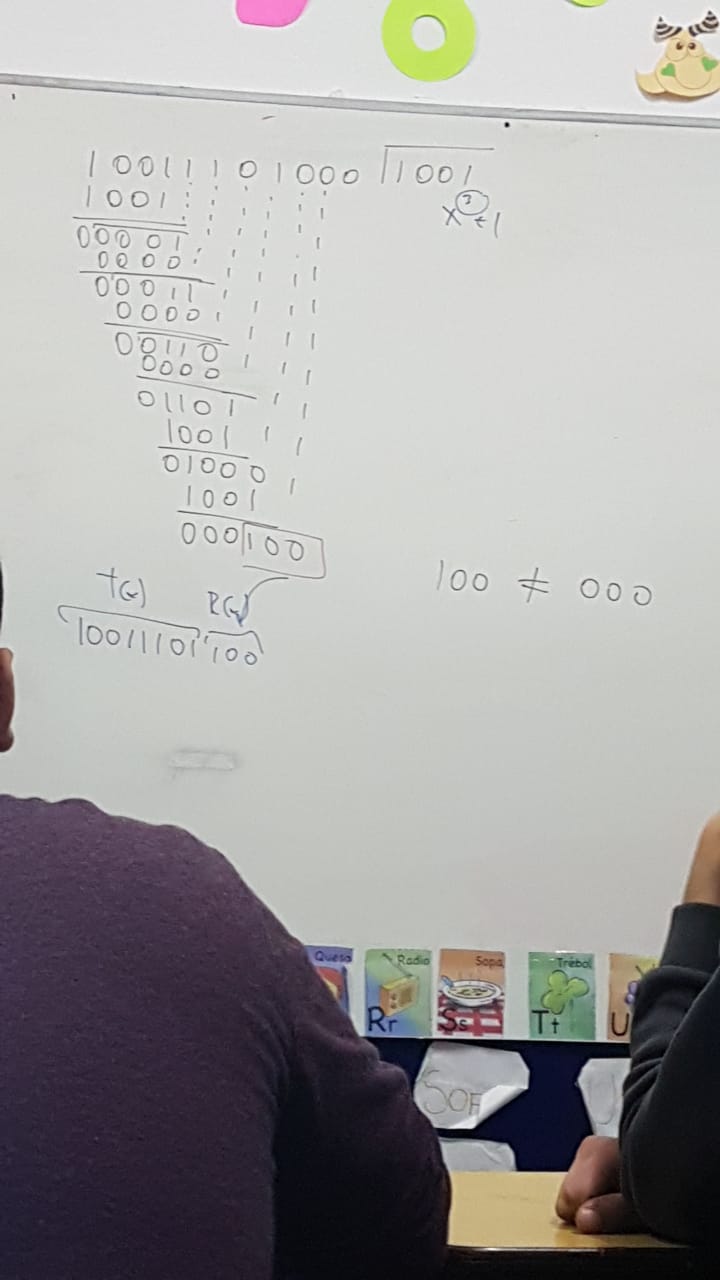 10011101000 1001
1001
x³+1
00001
0000
00011
0000
00110
0000
01101
1001
01000
1001
000100
100 ≠ 000
T(x) R(x)
10011101 100
Queso Radio Sopa Trébol
Rr Ss Tt U
SOF